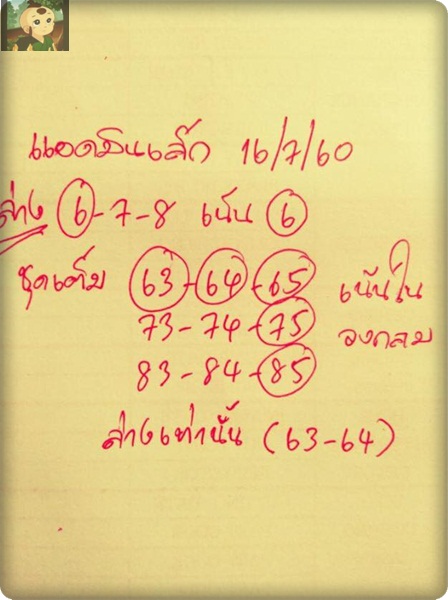 แอดมินเล็ก 16/7/60
ล่าง 6-7-8 เน้น 6
ชุดเต็ม 63-64-65 เน้นใน
73-74-75 วงกลม
83-84-85
ล่างเท่านั้น (63-64)